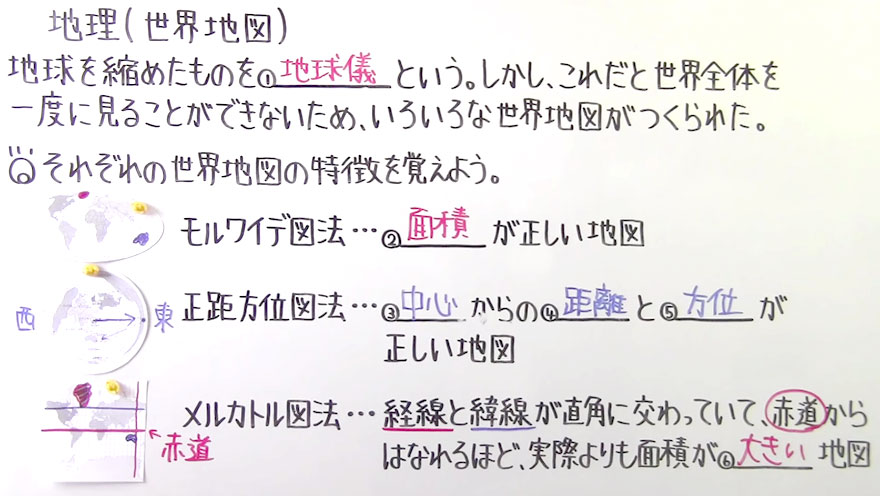 地理(世界地図)
地球を縮めたものを①地球儀という。しかし、これだと世界全体を
一度に見ることができないため、いろいろな世界地図がつくられた。
それぞれの世界地図の特徴を覚えよう。
モルワイデ図法…②面積が正しい地図
西 東
正距方位図法…③中心からの④距離と⑤方位が
正しい地図
メルカトル図法…経線と緯線が直角に交わっていて、赤道から
←赤道
はなれるほど、実際よりも面積が⑥大きい地図